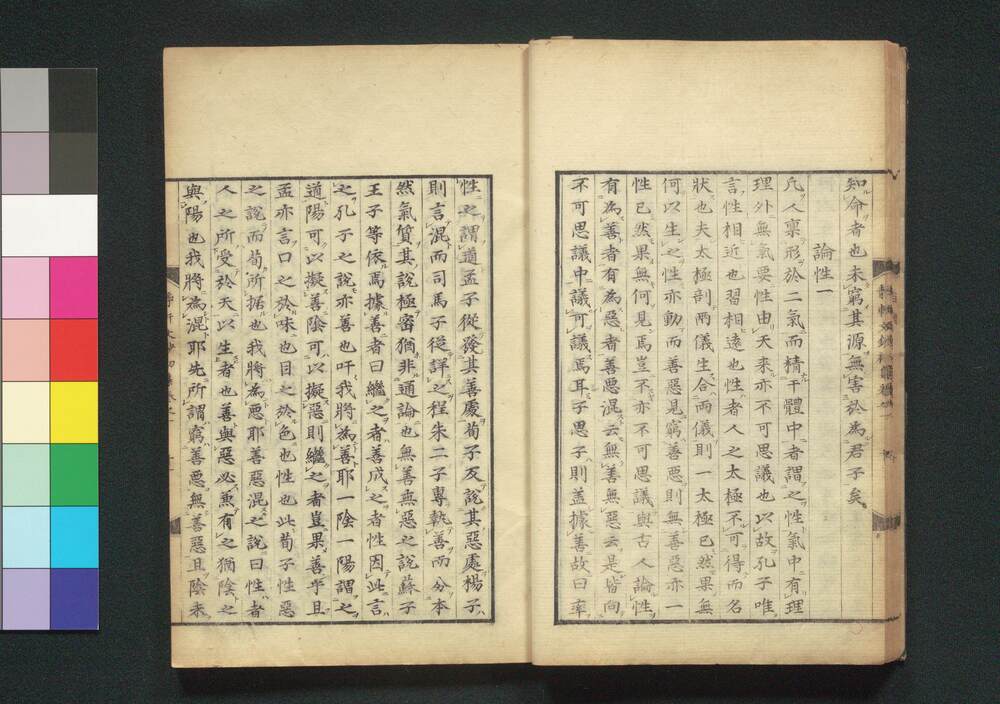 知命者也未窮其源無害於為君子矣
論性一
凡人稟形於二氣而精于體中者謂之性氣中有理
理外無氣要性由天来亦不可思議也以故孔子唯
言性相近也習相遠也性者人之太極不可得而名
狀也夫太極剖兩儀生合兩儀則一太極已然果無
何以生之性亦動而善惡見窮善惡則無善惡亦一
性已然果無何見焉豈不亦不可思議與古人論性
有為善者有為惡者善惡混云無善無惡云是皆向
不可思議中議可議焉耳子思子則蓋據善故曰率
性之謂道孟子從發其善處荀子反說其惡處楊子
則言混而司馬子從詳之程朱二子專執善而分本
然氣質其說極密猶非通論也無善無惡之說蘇子
王子等依焉據善者曰繼之者善成之者性因此言
之孔子之說亦善也吁我將為善耶一陰一陽謂之
道陽可以擬善陰可以擬惡則繼之者豈果善乎且
孟亦言口之於味也目之於色也性也此荀子性惡
之說而荀所据也我將為惡耶善惡混之說曰性者
人之所受於天以生者也善與惡必兼有之猶陰之
與陽也我將為混耶先所謂窮善惡無善惡且陰未